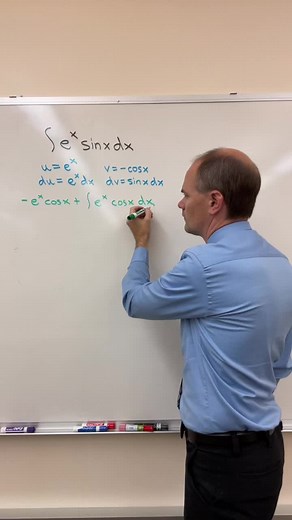 ∫ e^x sinx dx
u = e^x   v = -cosx
du = e^x dx   dv = sinx dx
-e^x cosx + ∫ e^x cosx dx